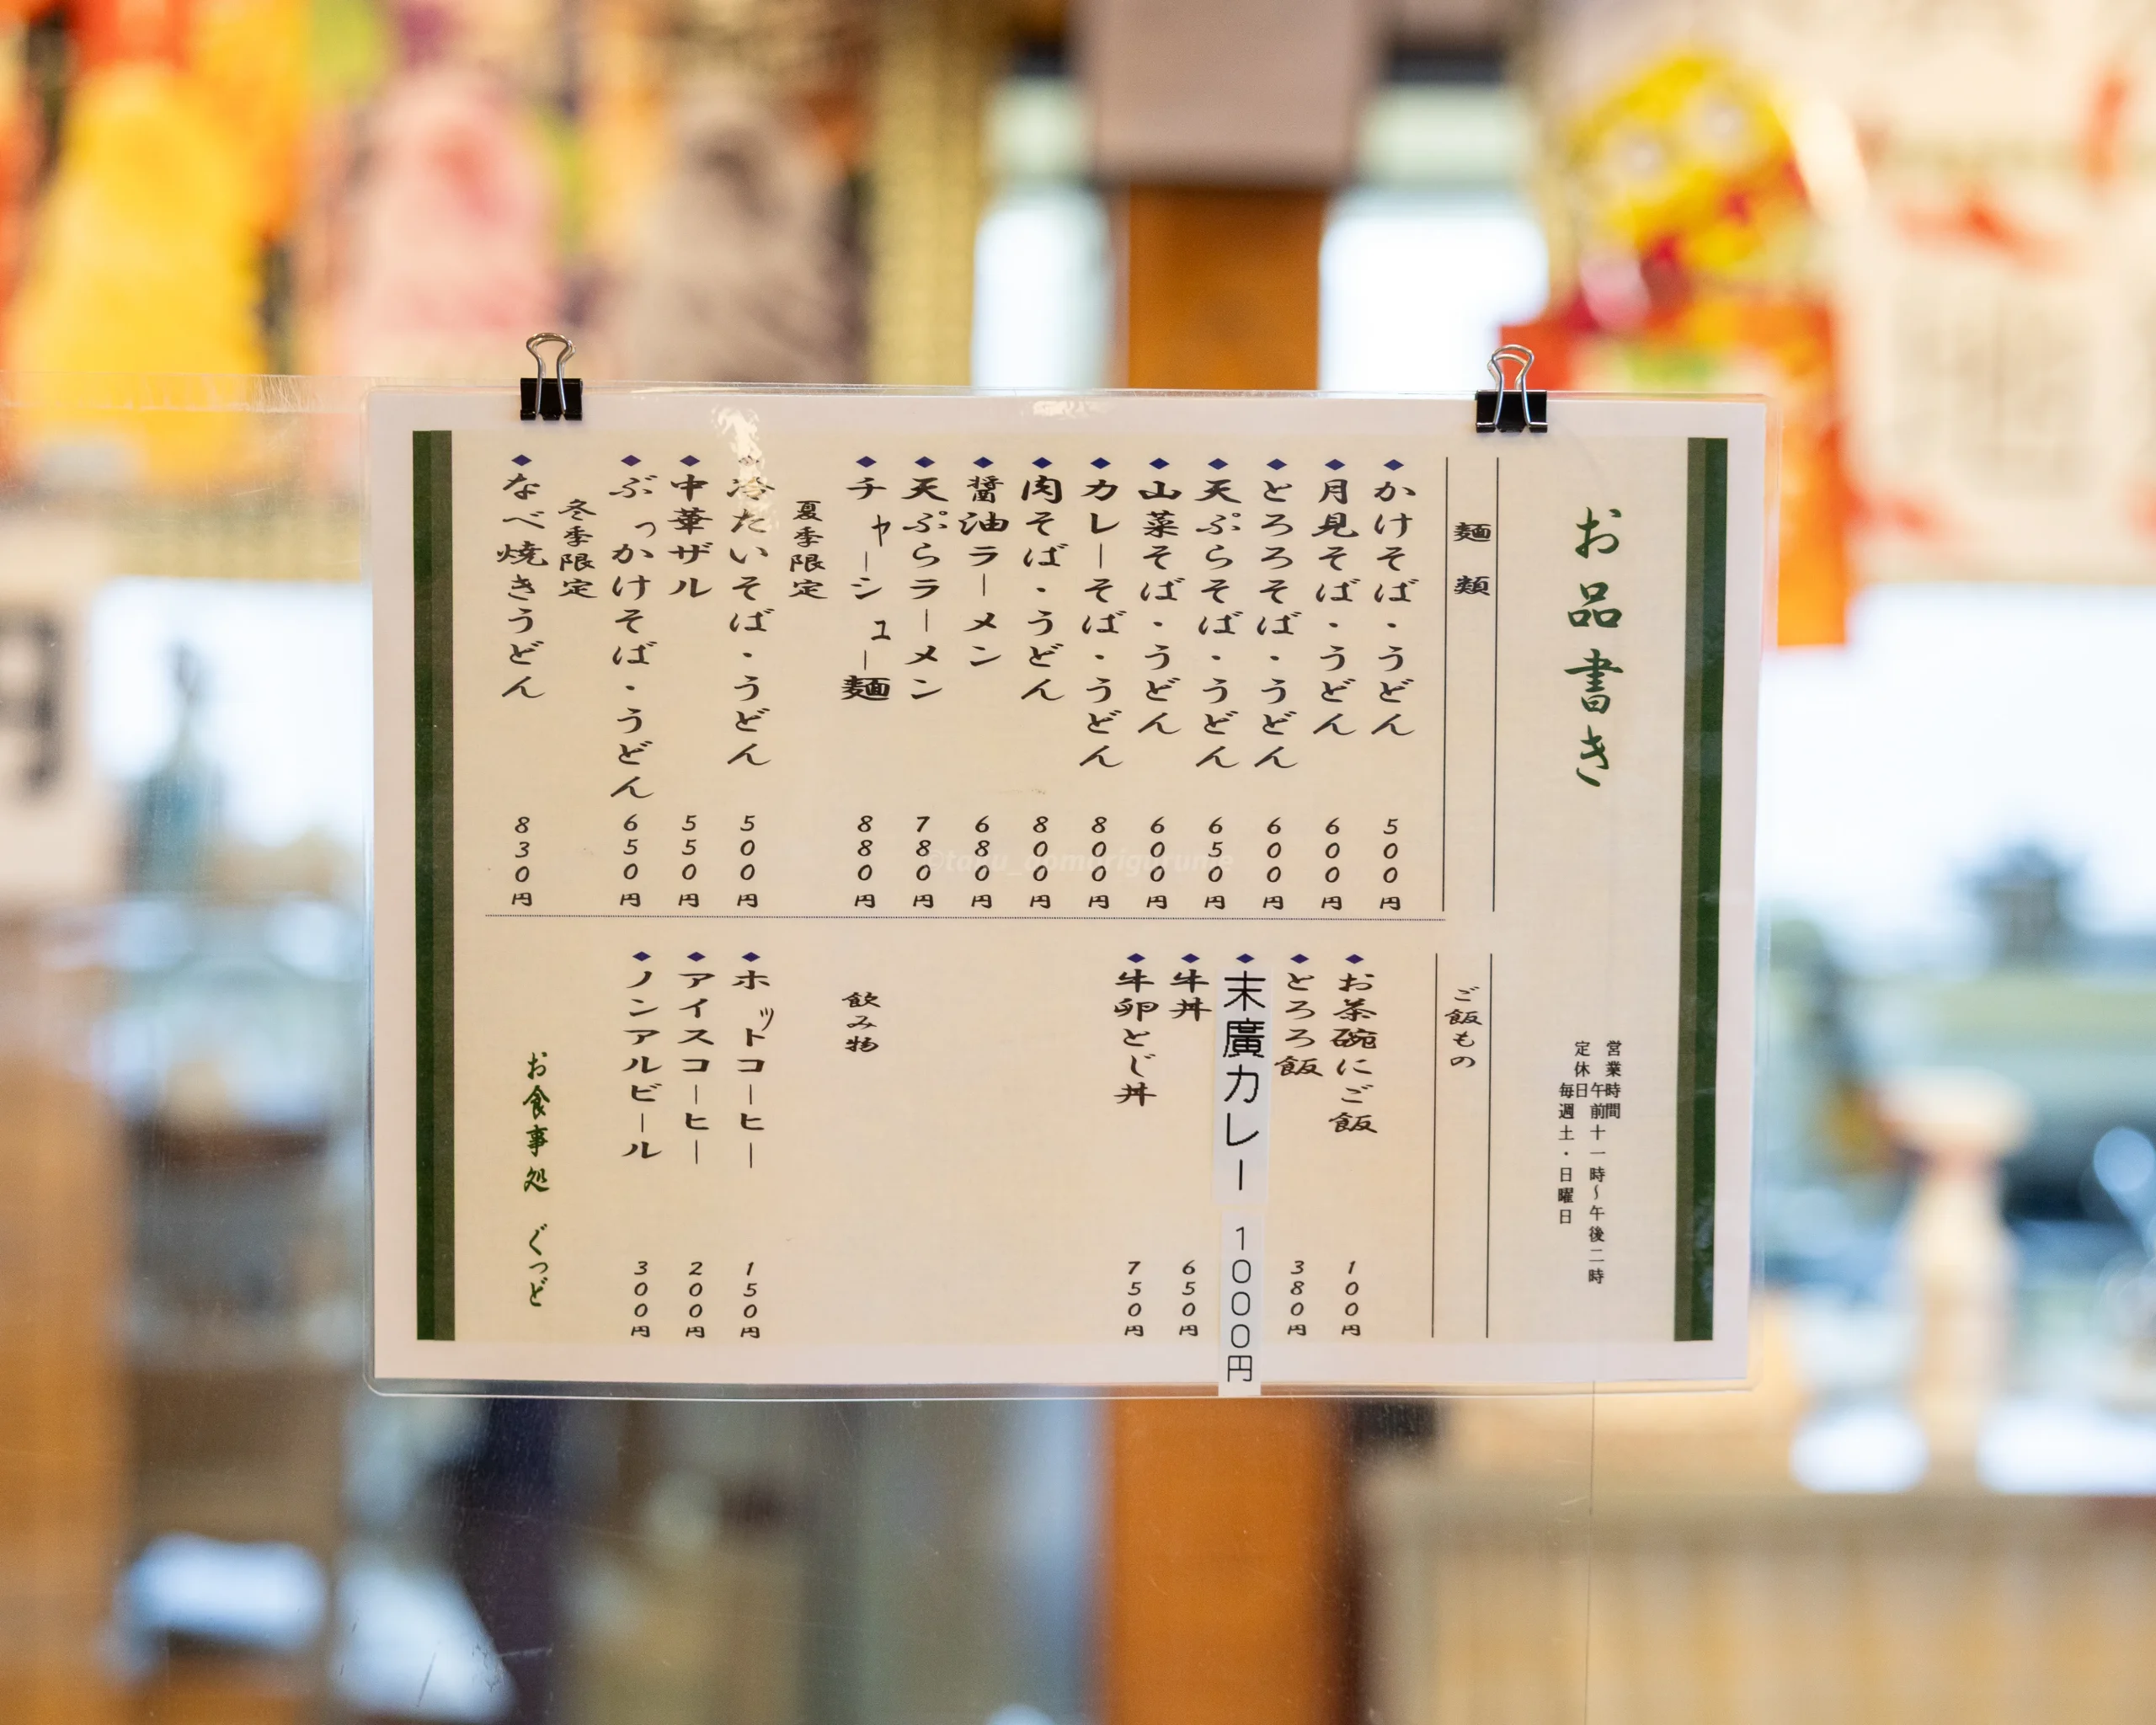 お品書き
営業時間
午前十一時～午後二時
定休日
毎週土・日曜日
麺類
かけそば・うどん 500円
月見そば・うどん 600円
とろろそば・うどん 600円
天ぷらそば・うどん 650円
山菜そば・うどん 600円
カレーそば・うどん 800円
肉そば・うどん 800円
醤油ラーメン 680円
天ぷらラーメン 780円
チャーシュー麺 880円
夏季限定
冷たいそば・うどん 500円
中華ザル 550円
ぶっかけそば・うどん 650円
冬季限定
なべ焼きうどん 830円
ご飯もの
お茶碗にご飯 100円
とろろ飯 380円
末廣カレー 1000円
牛丼 650円
牛卵とじ丼 750円
飲み物
ホットコーヒー 150円
アイスコーヒー 200円
ノンアルビール 300円
お食事処 ぐっど